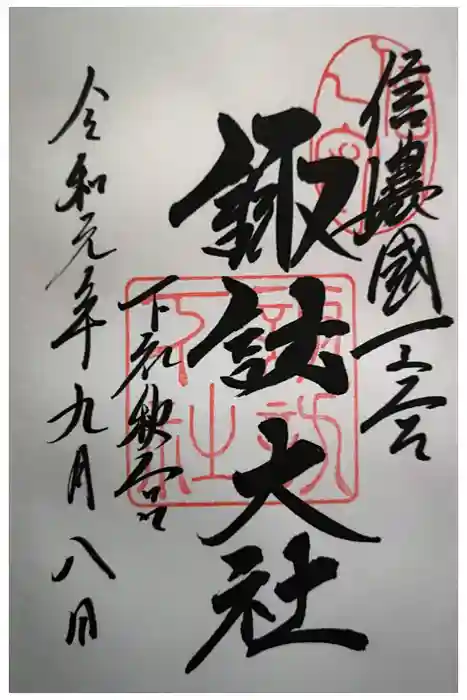 信濃國一之宮
諏訪大社
下社秋宮
令和元年九月八日